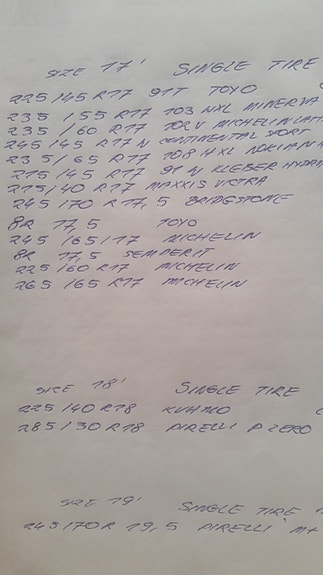 SIZE 17' SINGLE TIRE
225/45 R17 91T TOYO
235/55 R17 103 WXL MINERVA
235/60 R17 102V MICHELIN
245/45 R17 W CONTINENTAL SPORT
235/65 R17 108 H XL NOKIAN
215/45 R17 91 W KLEBER
215/40 R17 MAXXIS VICTRA
245/70 R17,5 BRIDGESTONE
8R 17,5 TOYO
245/65/17 MICHELIN
8R 17,5 SEMPERIT
225/60 R17 MICHELIN
265/65 R17 MICHELIN
SIZE 18' SINGLE TIRE
225/40 R18 KUHMO
285/30 R18 PIRELLI P ZERO
SIZE 19' SINGLE TIRE
245/70R 19,5 PIRELLI M+